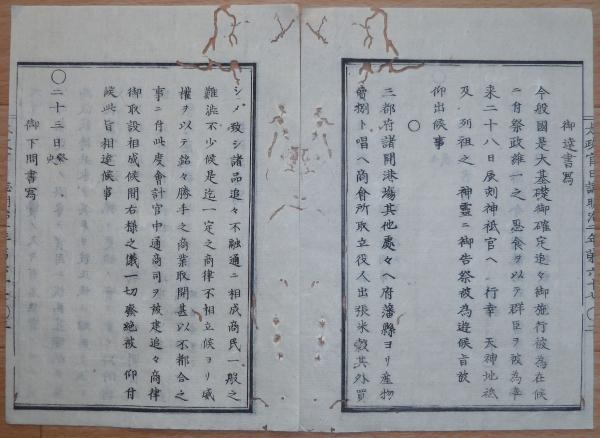 太政官日誌明治二年第六十七 〇二
御達書写
今般国是大基礎御確定追々御施行被為在候
ニ付祭政維一之 思食ヲ以テ群臣ヲ被為率
来二十八日辰刻神祇官ヘ 行幸 天神地祇
及 列祖之 神霊ニ御告祭被為遊候旨被
仰出候事
〇
三都府諸開港場其他処々ヘ府藩縣ヨリ産物
會捌ト唱ヘ商會所取立役人出張米穀其外買
シメ致シ諸品追々不融通ニ相成商民一般之
難渋不少候是迄一定之商律不相立候ヨリ威
權ヲ以テ銘々勝手之商業取開甚以不都合之
事ニ付此度會計官中通商司ヲ被建追々商律
御取設相成候間右様之儀一切廃絶被 仰付
候此旨相達候事
〇二十三日癸
御下問書写